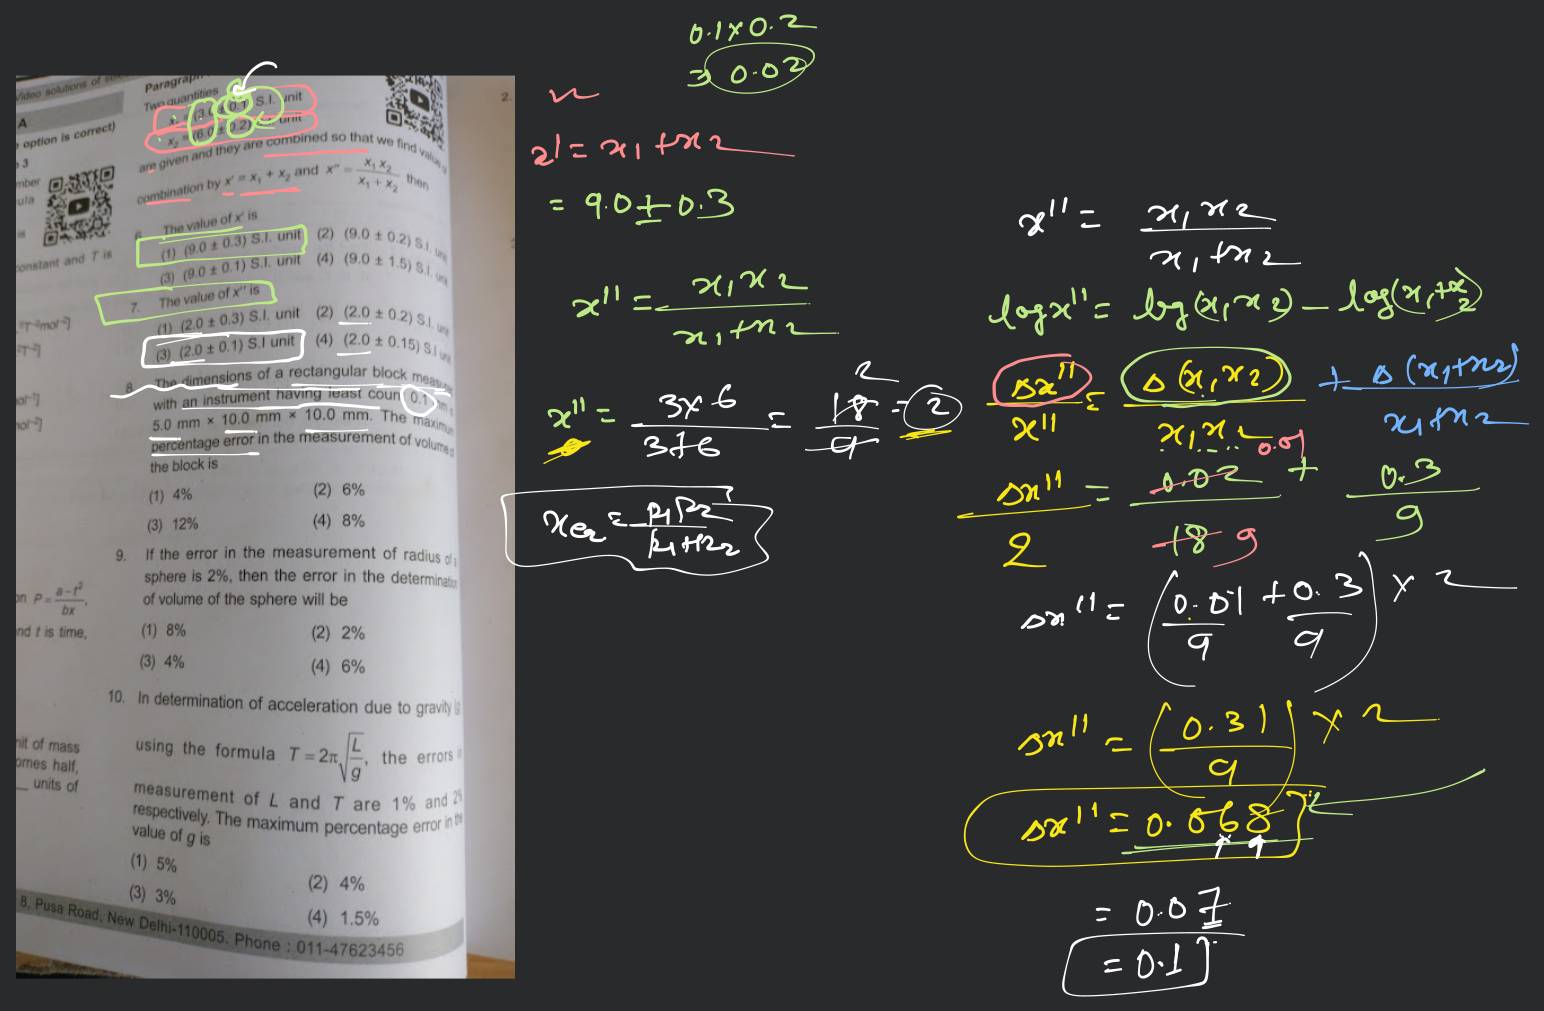 Video solutions of
A
option is correct)
3
mber
ula
is
constant and T is
mol⁻²]
on P = a−t²/bx,
nd t is time,
nit of mass
omes half,
__ units of
Paragraph
Two quantities
x₁ = (3.0 ± 0.1) S.I. unit
x₂ = (6.0 ± 0.2) unit
are given and they are combined so that we find value
combination by x' = x₁ + x₂ and x" = x₁ x₂ / x₁ + x₂ then
6. The value of x' is
(1) (9.0 ± 0.3) S.I. unit (2) (9.0 ± 0.2) S.I.
(3) (9.0 ± 0.1) S.I. unit (4) (9.0 ± 1.5) S.I.
7. The value of x" is
(1) (2.0 ± 0.3) S.I. unit (2) (2.0 ± 0.2) S.I.
(3) (2.0 ± 0.1) S.I unit (4) (2.0 ± 0.15) S.I
8. The dimensions of a rectangular block
with an instrument having least coun 0.1
5.0 mm × 10.0 mm × 10.0 mm. The maximum
percentage error in the measurement of volume
the block is
(1) 4% (2) 6%
(3) 12% (4) 8%
9. If the error in the measurement of radius of
sphere is 2%, then the error in the determinat
of volume of the sphere will be
(1) 8% (2) 2%
(3) 4% (4) 6%
10. In determination of acceleration due to gravity
using the formula T = 2π√(L/g), the errors
measurement of L and T are 1% and 2%
respectively. The maximum percentage error in the
value of g is
(1) 5% (2) 4%
(3) 3% (4) 1.5%
8, Pusa Road, New Delhi-110005. Phone : 011-47623456
2.
0.1 × 0.2
= 0.02
x' = x₁ + x₂
= 9.0 ± 0.3
x'' = x₁ x₂ / x₁ + x₂
x'' = 3×6 / 3+6 = 18 / 9 = 2
2
R₁R₂ / R₁+R₂
x'' = x₁ x₂ / x₁ + x₂
log x'' = log(x₁ x₂) − log(x₁ + x₂)
Δx'' / x'' = Δ(x₁ x₂) / x₁ x₂ + Δ(x₁+x₂) / x₁+x₂
0.01
Δx'' / 2 = 0.02 / 18 + 0.3 / 9
9
Δx'' = (0.01 / 9 + 0.3 / 9) × 2
Δx'' = (0.31 / 9) × 2
Δx'' = 0.068
= 0.07
= 0.1